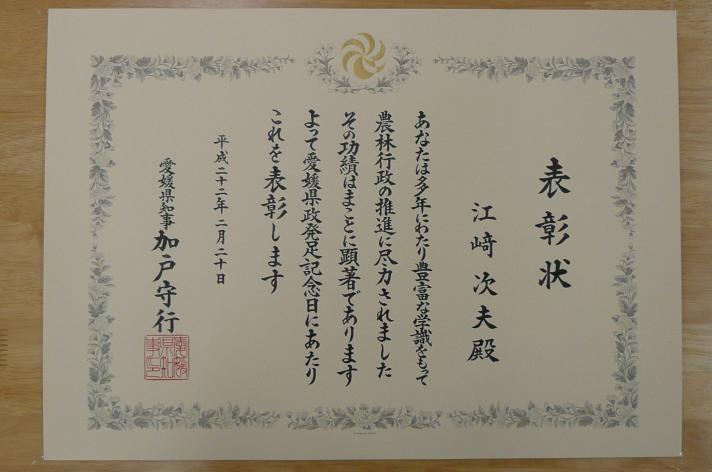 表彰状
江﨑次夫殿
あなたは多年にわたり豊富な学識をもって
農林行政の推進に尽力されました
その功績はまことに顕著であります
よって愛媛県政発足記念日にあたり
これを表彰します
平成二十二年二月二十日
愛媛県知事 加戸守行
愛媛県知事印